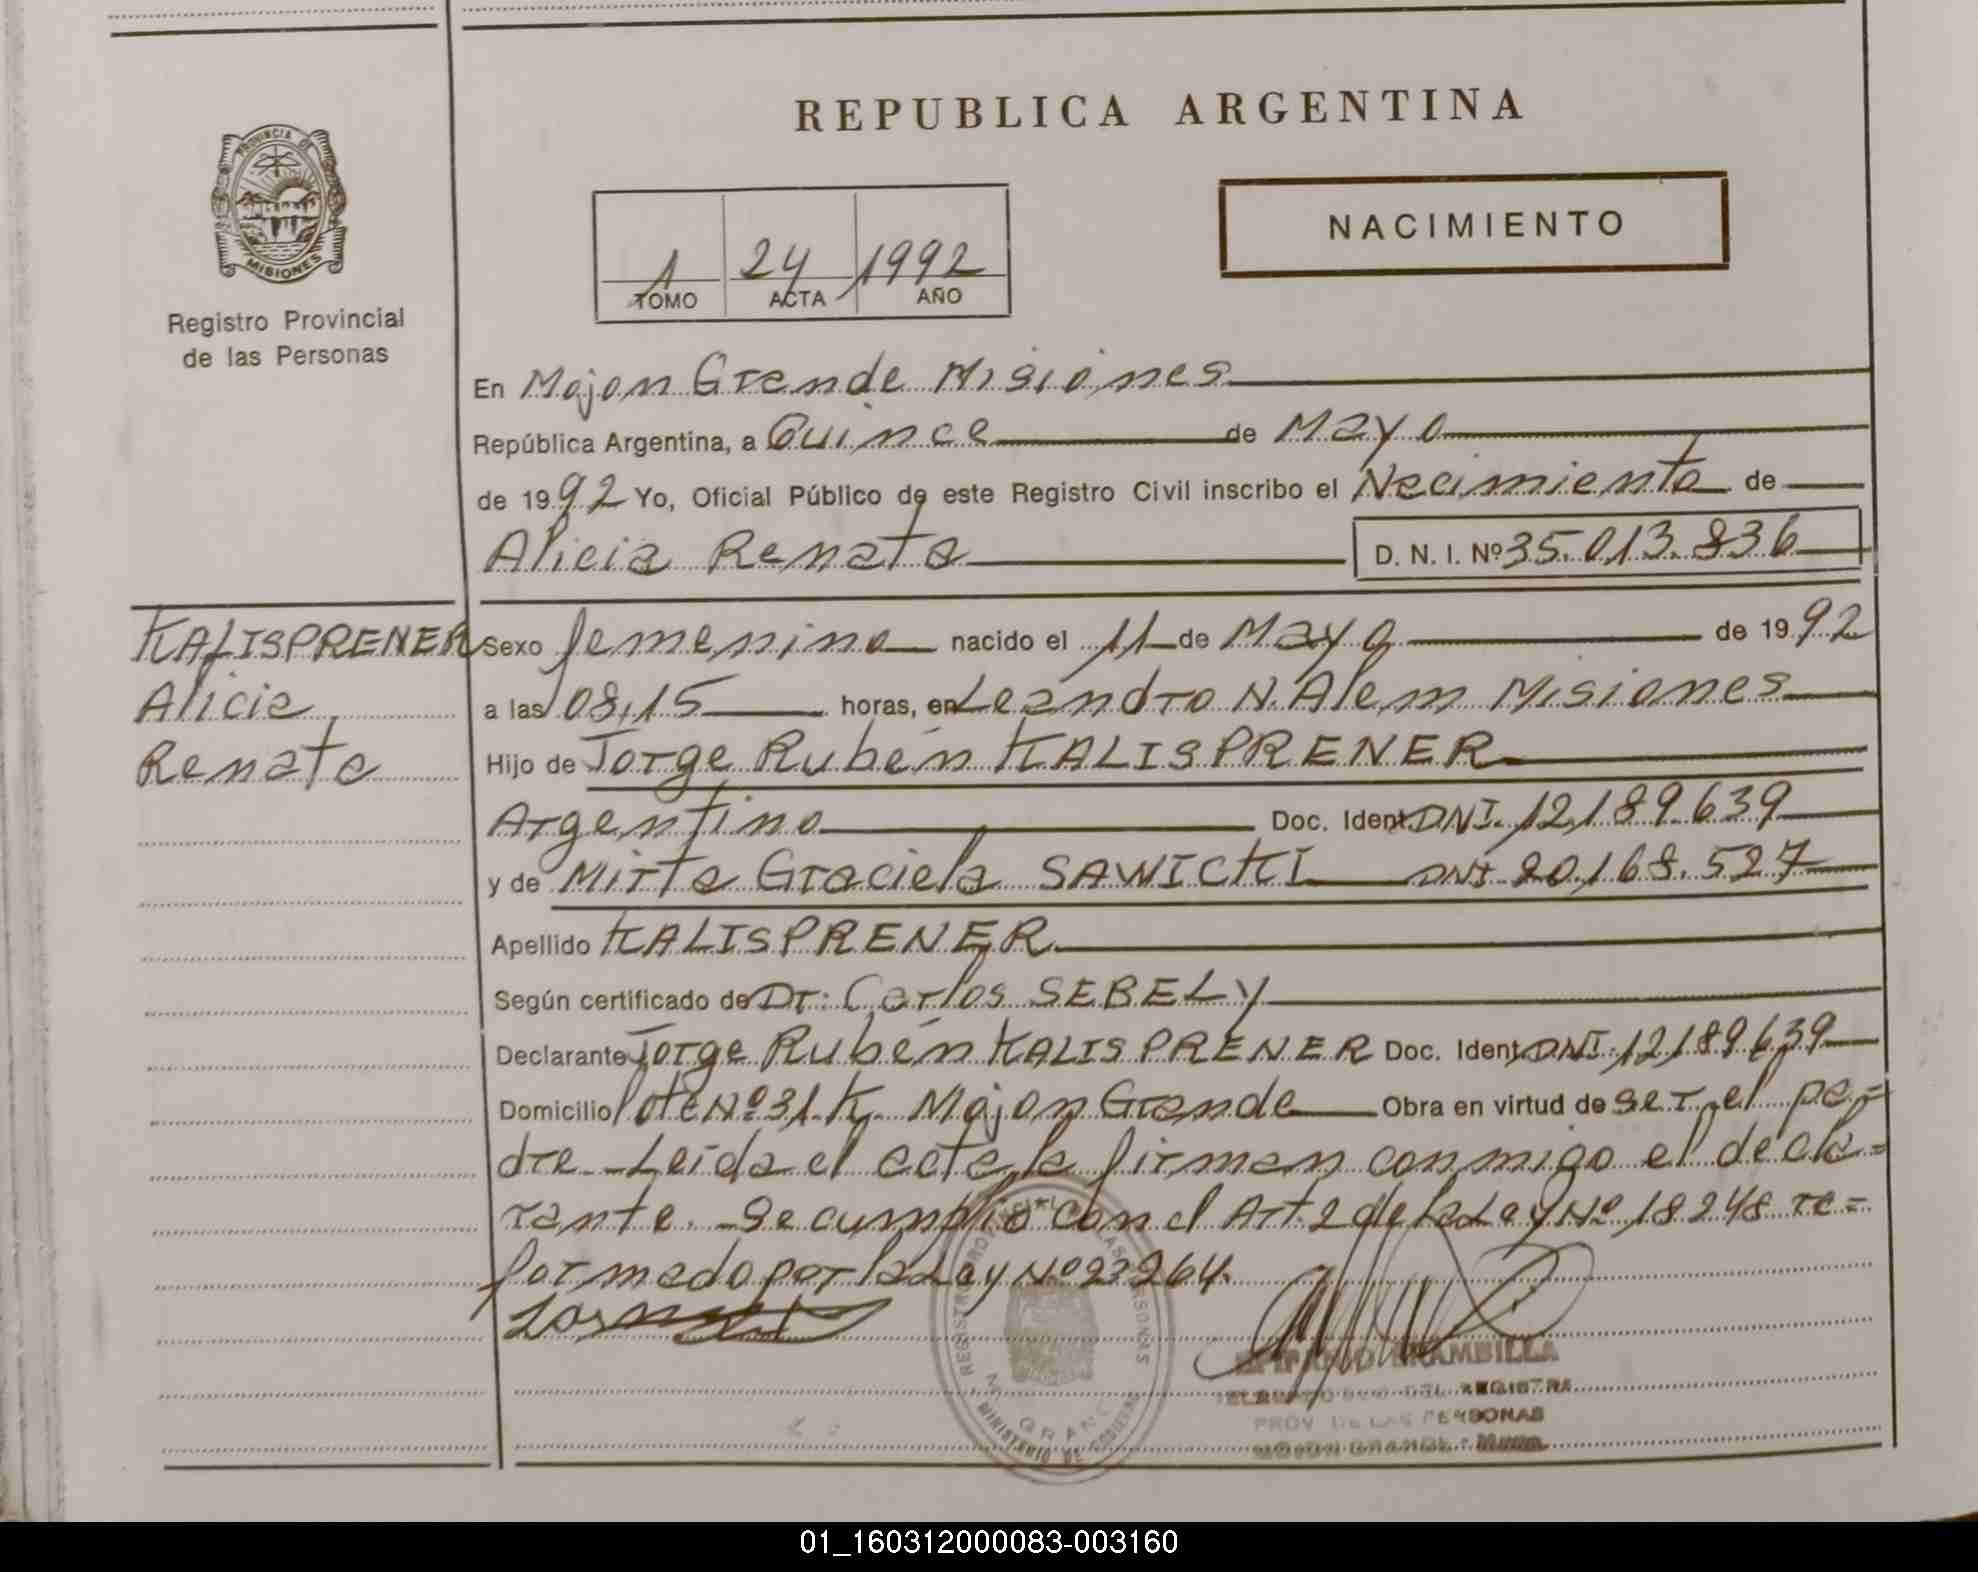 REPUBLICA ARGENTINA
PROVINCIA DE
MISIONES
Registro Provincial
de las Personas
1 24 1992
TOMO ACTA AÑO
NACIMIENTO
En Mojon Grande Misiones
República Argentina, a Quince de Mayo
de 1992 Yo, Oficial Público de este Registro Civil inscribo el Nacimiento de
Alicia Renata D. N. I. Nº 35.013.836
KALISPRENER
Alicia
Renata
Sexo femenino nacido el 11 de Mayo de 1992
a las 08,15 horas, en Leandro N. Alem Misiones
Hijo de Jorge Rubén KALISPRENER
Argentino Doc. Ident. DNI. 12,189.639
y de Mirta Graciela SAWICKI DNI 20,168.527
Apellido KALISPRENER
Según certificado de Dr: Carlos SEBELY
Declarante Jorge Rubén KALISPRENER Doc. Ident. DNI. 12,189.639
Domicilio lote Nº 31. K. Mojon Grande Obra en virtud de ser el pa=
dre. Leída el acta la firman conmigo el decla=
rante. Se cumplió con el Art. 2 de la Ley Nº 18248 re=
formado por la Ley Nº 23264.
BRAMBILLA
DEL REGISTRO
PROV. DE LAS PERSONAS
MOJON GRANDE - Mnes.
MINISTERIO DE GOBIERNO
01_160312000083-003160